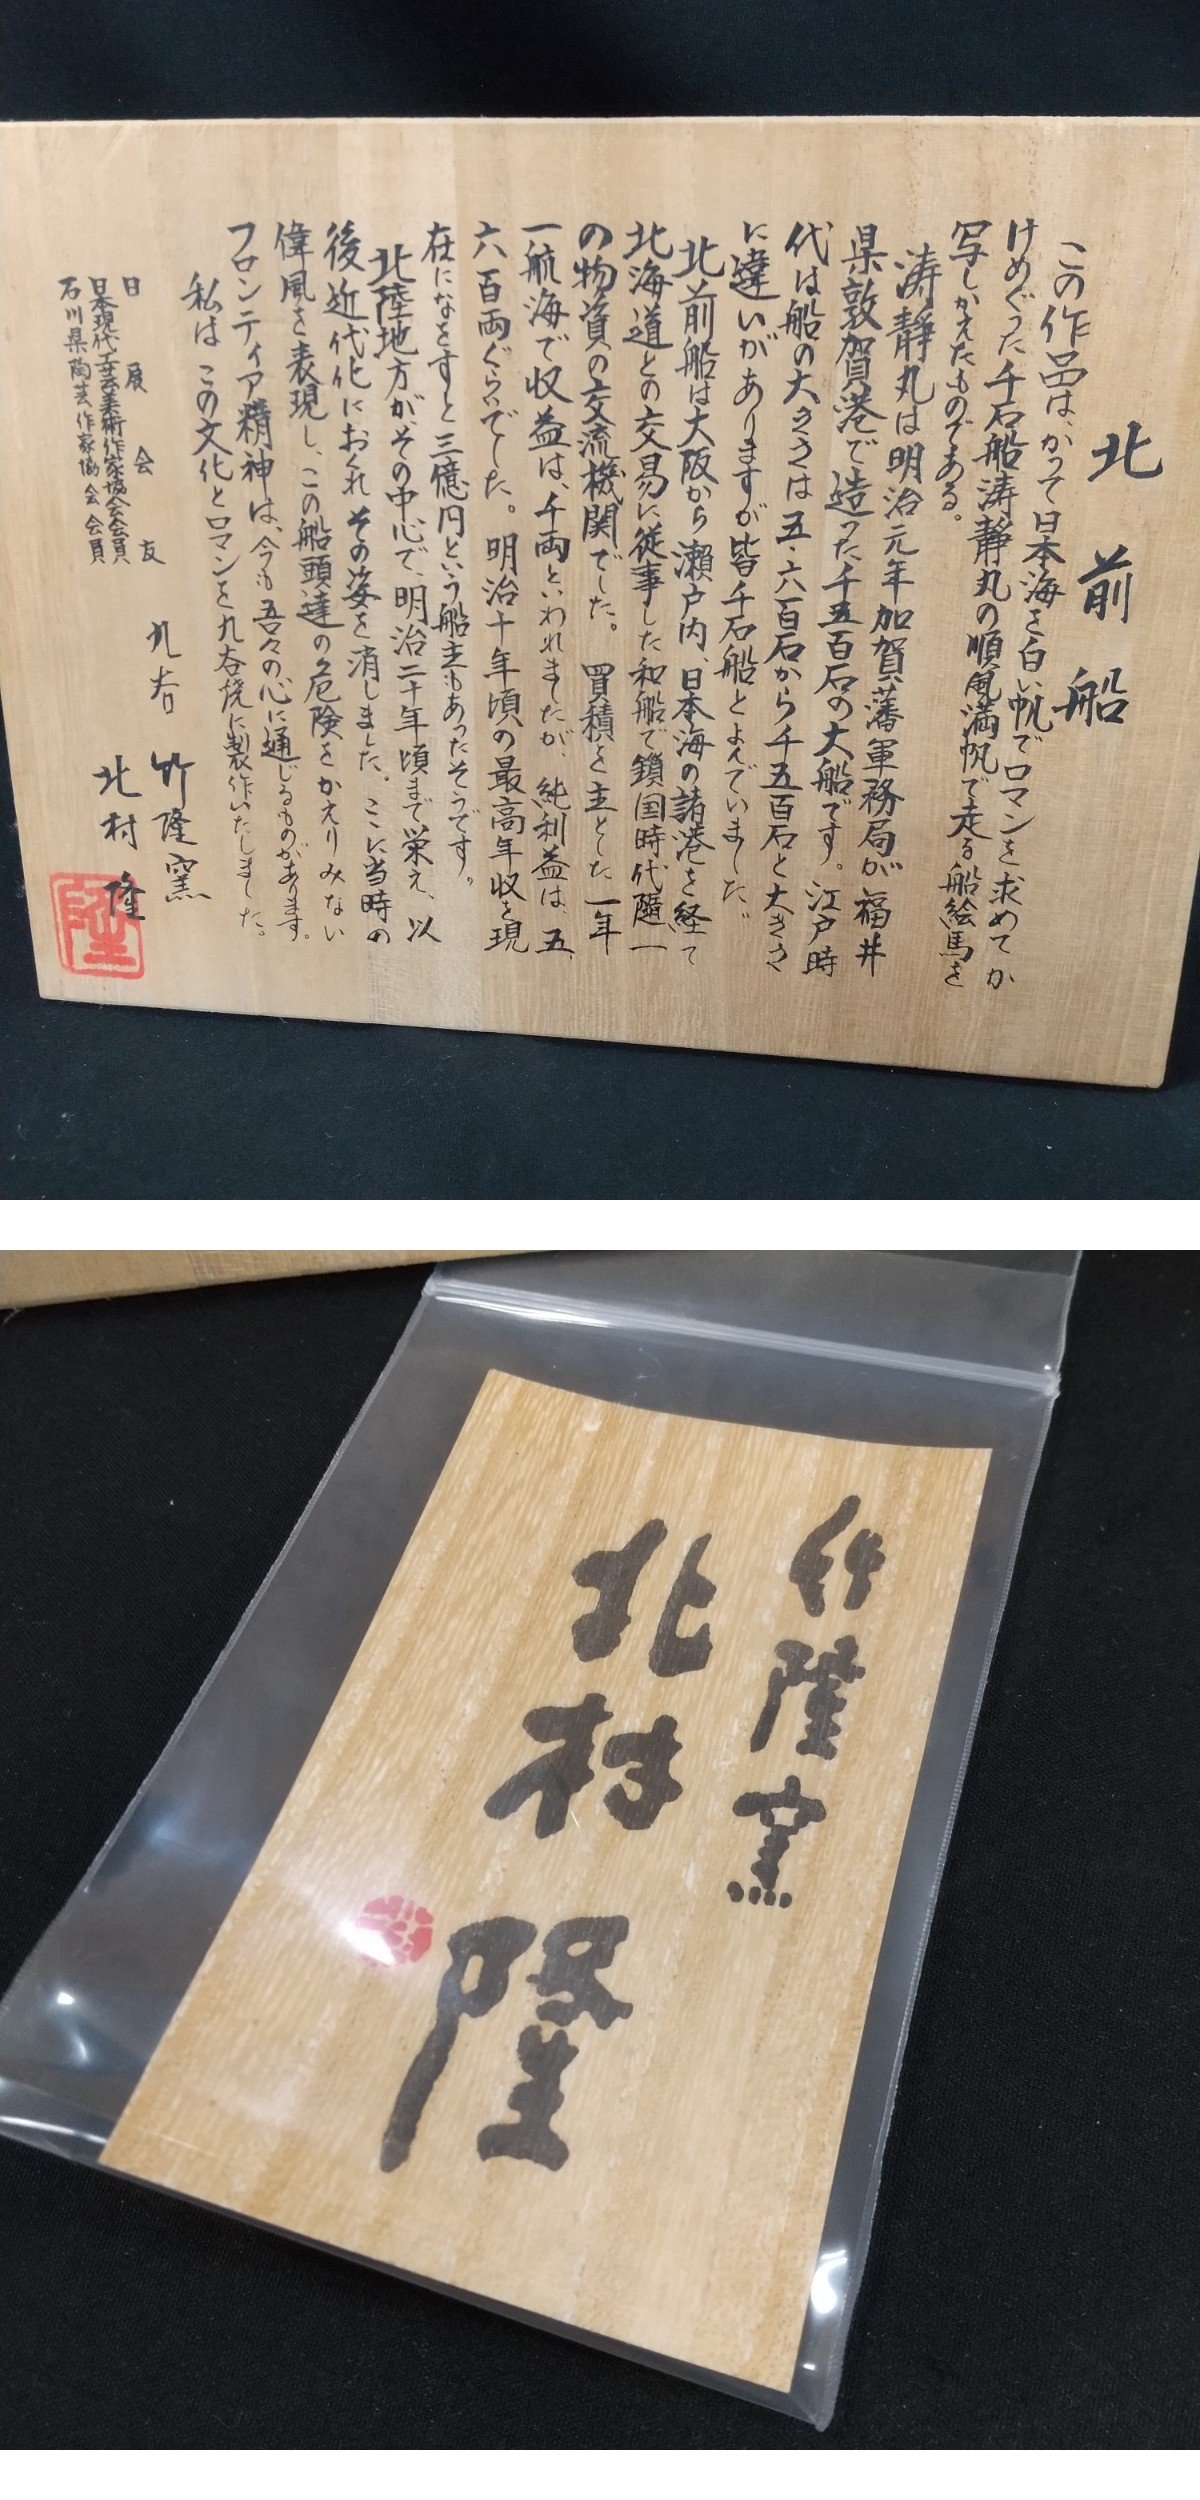 北前船
この作品は、かって日本海を白い帆でロマンを求めてか
けめぐった千石船涛静丸の順風満帆で走る船絵馬を
写しかえたものである。
涛静丸は明治元年加賀藩軍務局が福井
県敦賀港で造った千五百石の大船です。江戸時
代は船の大きさは五・六百石から千五百石と大きさ
に違いがありますが皆千石船とよんでいました
北前船は大阪から瀬戸内、日本海の諸港を経て
北海道との交易に従事した和船で鎖国時代随一
の物資の交流機関でした。買積を主とした一年
一航海で収益は、千両といわれましたが、純利益は、五、
六百両ぐらいでした。明治十年頃の最高年収を現
在になをすと三億円という船主もあったそうです。
北陸地方がその中心で、明治二十年頃まで栄え、以
後近代化におくれその姿を消しました。ここに当時の
偉風を表現し、この船頭達の危険をかえりみない
フロンティア精神は、今も吾々の心に通じるものがあります。
私はこの文化とロマンを九谷焼に製作いたしました。
日展会友
日本現代工芸美術作家協会会員
石川県陶芸作家協会会員
九谷 竹隆窯
北村隆
隆
竹隆窯
北村隆